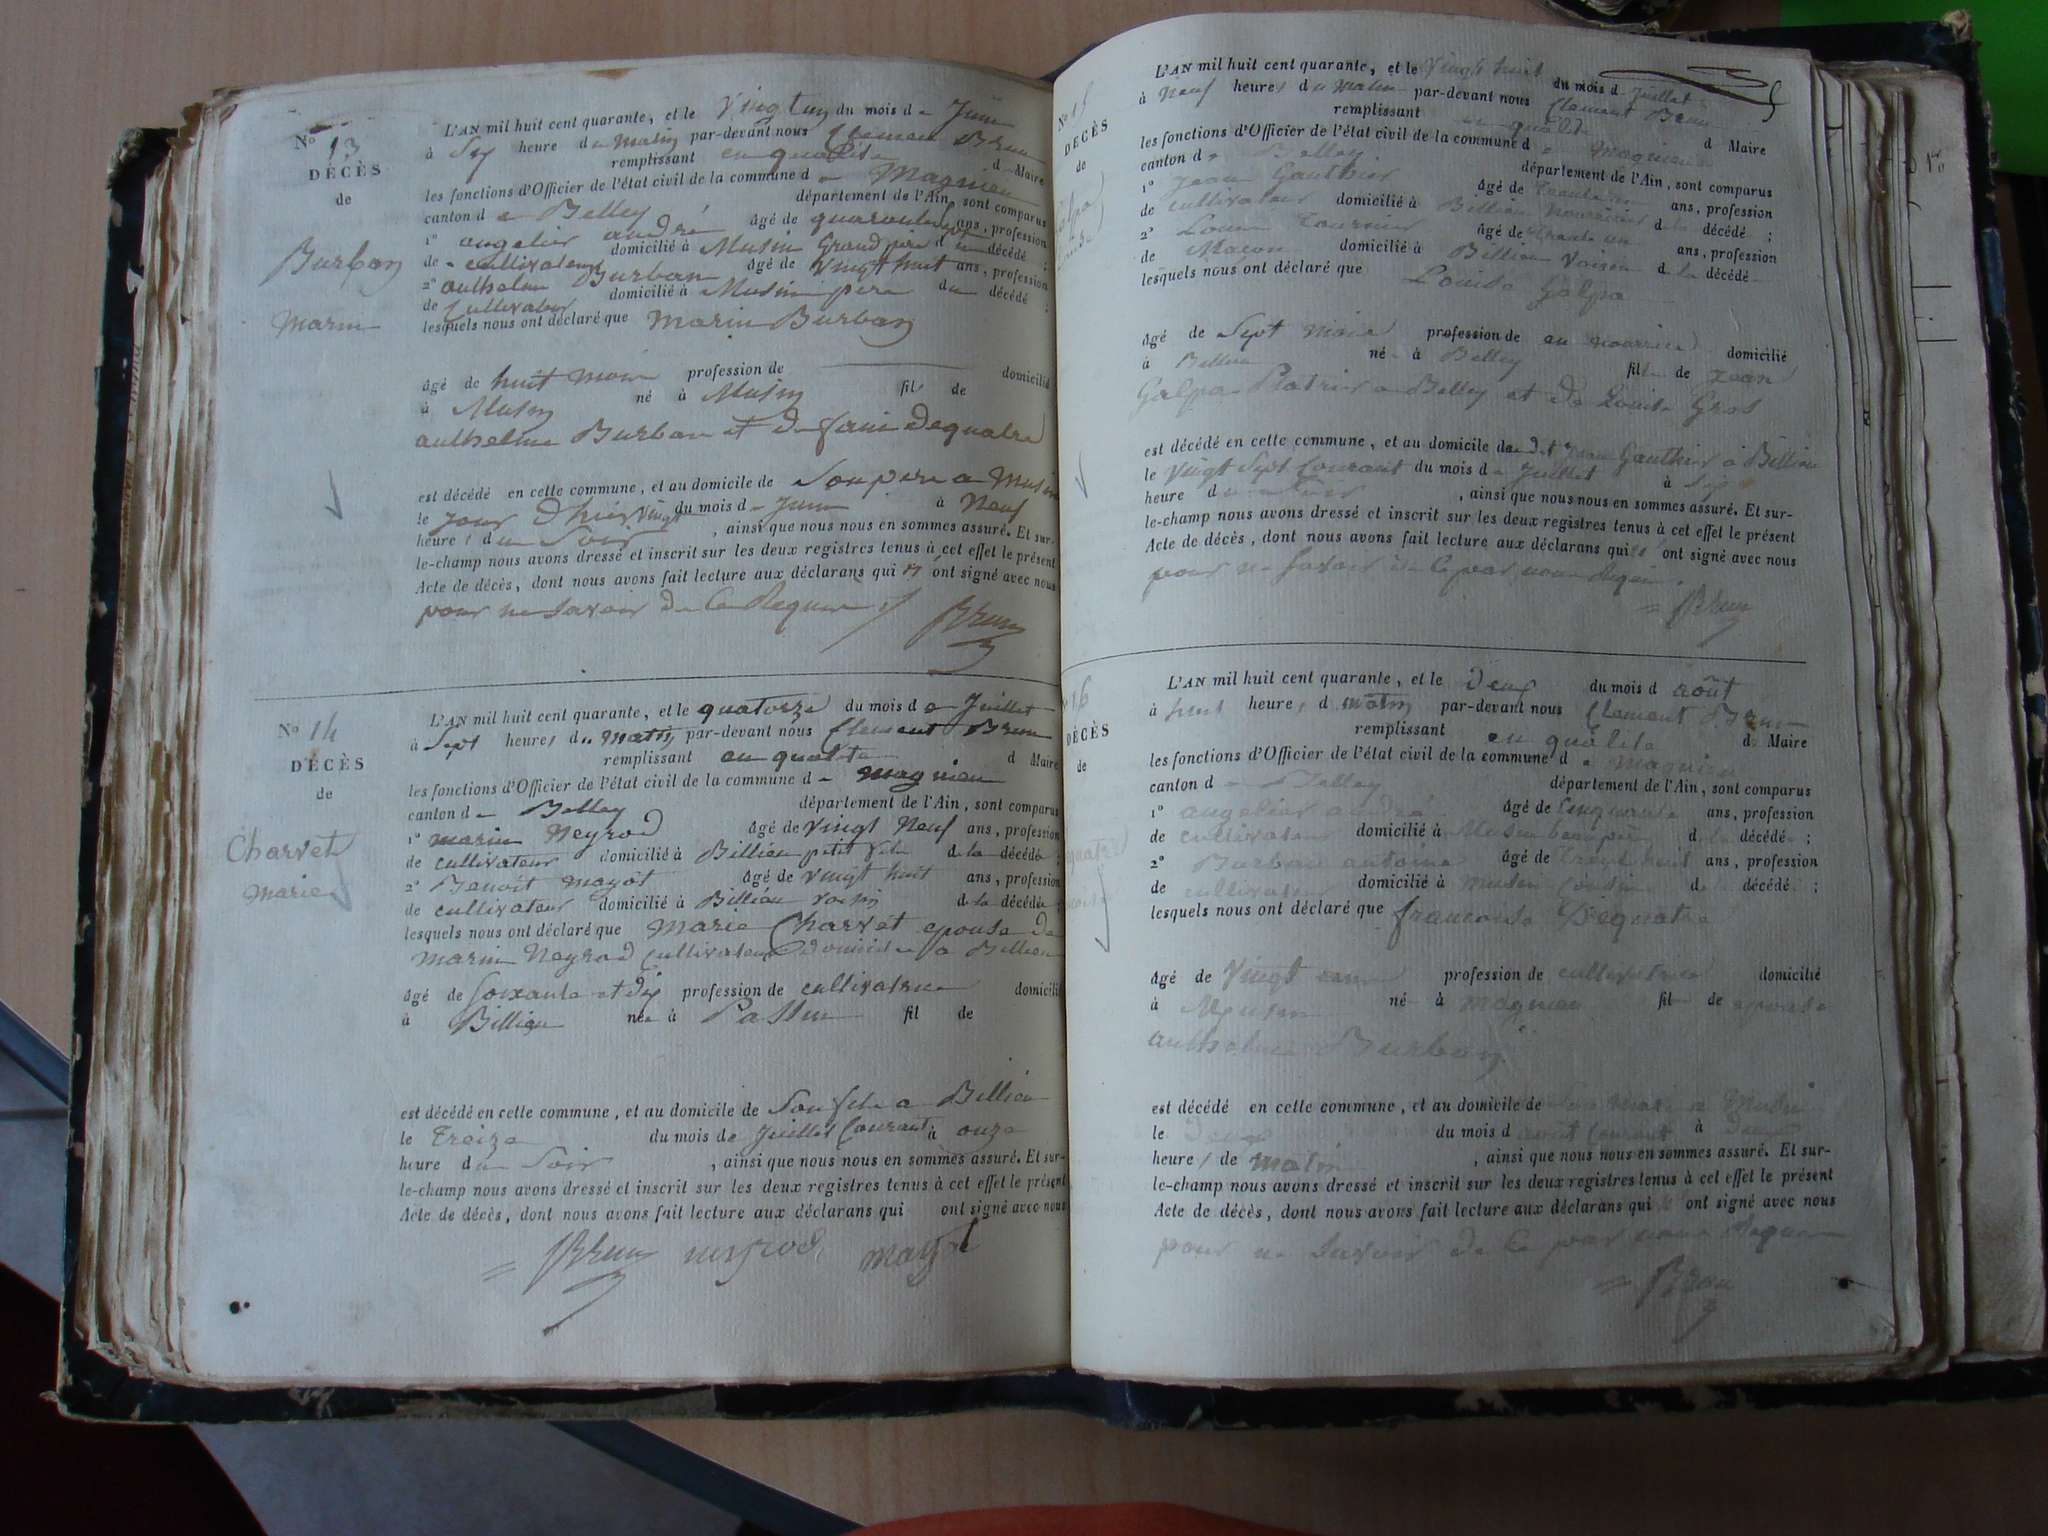 N° 13
DÉCÈS
de
Burban
Marin
L'AN mil huit cent quarante, et le vingt un du mois de Juin
à Six heure du Matin par-devant nous Clément Brun
remplissant en qualité d Maire
les fonctions d'Officier de l'état civil de la commune de Magnieu
canton de Belley département de l'Ain, sont comparus
1° angelier andré âgé de ans, profession
de cultivateur domicilié à Musin Grand père du décédé ;
2° anthelme Burban âgé de vingt huit ans, profession
de Cultivateur domicilié à Musin père du décédé ;
lesquels nous ont déclaré que Marin Burban
âgé de huit mois profession de domicilié
à Musin né à Musin fils de
anthelme Burban et de fanie dequatre
est décédé en cette commune, et au domicile de Son père a Musin
le jour d'hier vingt du mois de Juin à Neuf
heures du Soir , ainsi que nous nous en sommes assuré. Et sur-
le-champ nous avons dressé et inscrit sur les deux registres tenus à cet effet le présent
Acte de décès, dont nous avons fait lecture aux déclarans qui n ont signé avec nous
pour ne Savoir de Ce Requis
Brun
N° 14
DÉCÈS
de
Charvet
Marie
L'AN mil huit cent quarante, et le quatorze du mois de Juillet
à Sept heures du Matin par-devant nous Clément Brun
remplissant en qualité d Maire
les fonctions d'Officier de l'état civil de la commune de Magnieu
canton de Belley département de l'Ain, sont comparus
1° Marin Neyrod âgé de vingt Neuf ans, profession
de cultivateur domicilié à Billieu petit fils de la décédée ;
2° Benoit mayot âgé de vingt huit ans, profession
de cultivateur domicilié à Billieu voisin de la décédée ;
lesquels nous ont déclaré que Marie Charvet epouse de
Marin Neyrod cultivateur domicilié a Billieu
âgé de Soixante et dix profession de cultivatrice domicilié
à Billieu née à fil de
est décédé en cette commune, et au domicile de Son fils a Billieu
le Treize du mois de Juillet Courant à onze
heure du Soir , ainsi que nous nous en sommes assuré. Et sur-
le-champ nous avons dressé et inscrit sur les deux registres tenus à cet effet le présent
Acte de décès, dont nous avons fait lecture aux déclarans qui ont signé avec nous
Brun neyrod mayot
N° 15
DÉCÈS
de
L'AN mil huit cent quarante, et le vingt huit du mois d Juillet
à Neuf heures du Matin par-devant nous Clément Brun
remplissant en qualité d Maire
les fonctions d'Officier de l'état civil de la commune de Magnieu
canton de Belley département de l'Ain, sont comparus
1° Jean Gauthier âgé de ans, profession
de cultivateur domicilié à Billieu Nourricier de la décédé ;
2° Louis Tournier âgé de ans, profession
de Maçon domicilié à Billieu Voisin de la décédé
lesquels nous ont déclaré que Louise Galpa
âgé de Sept mois profession de en nourrice domicilié
à Billieu né à Belley fille de Jean
Galpa Platrier a Belley et de Louise Gros
est décédé en cette commune, et au domicile dudit Jean Gauthier à Billieu
le Vingt Sept Courant du mois de Juillet à Sept
heure du Soir , ainsi que nous nous en sommes assuré. Et sur-
le-champ nous avons dressé et inscrit sur les deux registres tenus à cet effet le présent
Acte de décès, dont nous avons fait lecture aux déclarans qui ont signé avec nous
pour ne Savoir de Ce par nous Requis.
Brun
16
DÉCÈS
de
L'AN mil huit cent quarante, et le deux du mois d août
à heures d matin par-devant nous Clement Brun
remplissant en qualité de Maire
les fonctions d'Officier de l'état civil de la commune de Magnieu
canton de Belley département de l'Ain, sont comparus
1° angelier andré âgé de Cinquante ans, profession
de cultivateur domicilié à Musin beau père de la décédée ;
2° Burban antoine âgé de Trente huit ans, profession
de cultivateur domicilié à Musin Cousin de la décédé ;
lesquels nous ont déclaré que francoise Dequatre
âgé de Vingt profession de cultivatrice domicilié
à Musin né à Magnieu fil de epouse
anthelme Burban
est décédé en cette commune, et au domicile de Son Mari a Musin
le Deux du mois d août Courant à
heures de matin , ainsi que nous nous en sommes assuré. Et sur-
le-champ nous avons dressé et inscrit sur les deux registres tenus à cet effet le présent
Acte de décès, dont nous avons fait lecture aux déclarans qui ont signé avec nous
pour ne Savoir de Ce par nous Requis
Brun